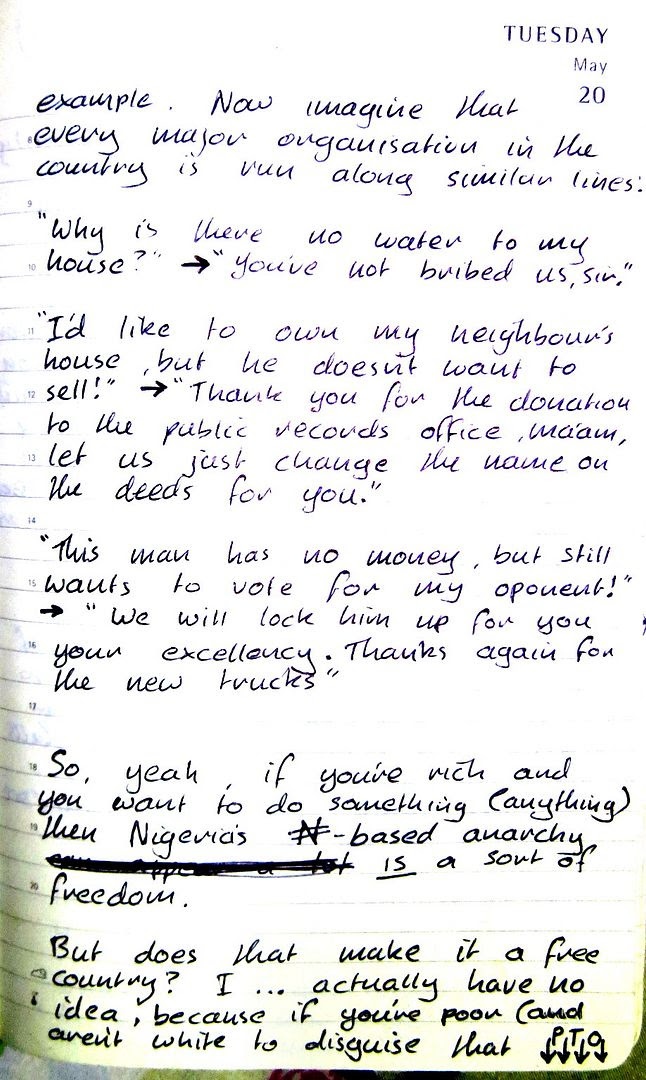 TUESDAY
May
20
example. Now imagine that
every major organisation in the
country is run along similar lines:
"Why is there no water to my
house?" → "You've not bribed us, sir."
"I'd like to own my neighbour's
house, but he doesn't want to
sell!" → "Thank you for the donation
to the public records office, ma'am,
let us just change the name on
the deeds for you."
"This man has no money, but still
wants to vote for my oponent!"
→ "We will lock him up for you
your excellency. Thanks again for
the new trucks"
So, yeah, if you're rich and
you want to do something (anything)
then Nigeria's ₦-based anarchy
is a sort of
freedom.
But does that make it a free
country? I ... actually have no
idea, because if you're poor (and
aren't white to disguise that ↓P↓T↓O↓
8
9
10
11
12
13
14
15
16
17
18
19
20